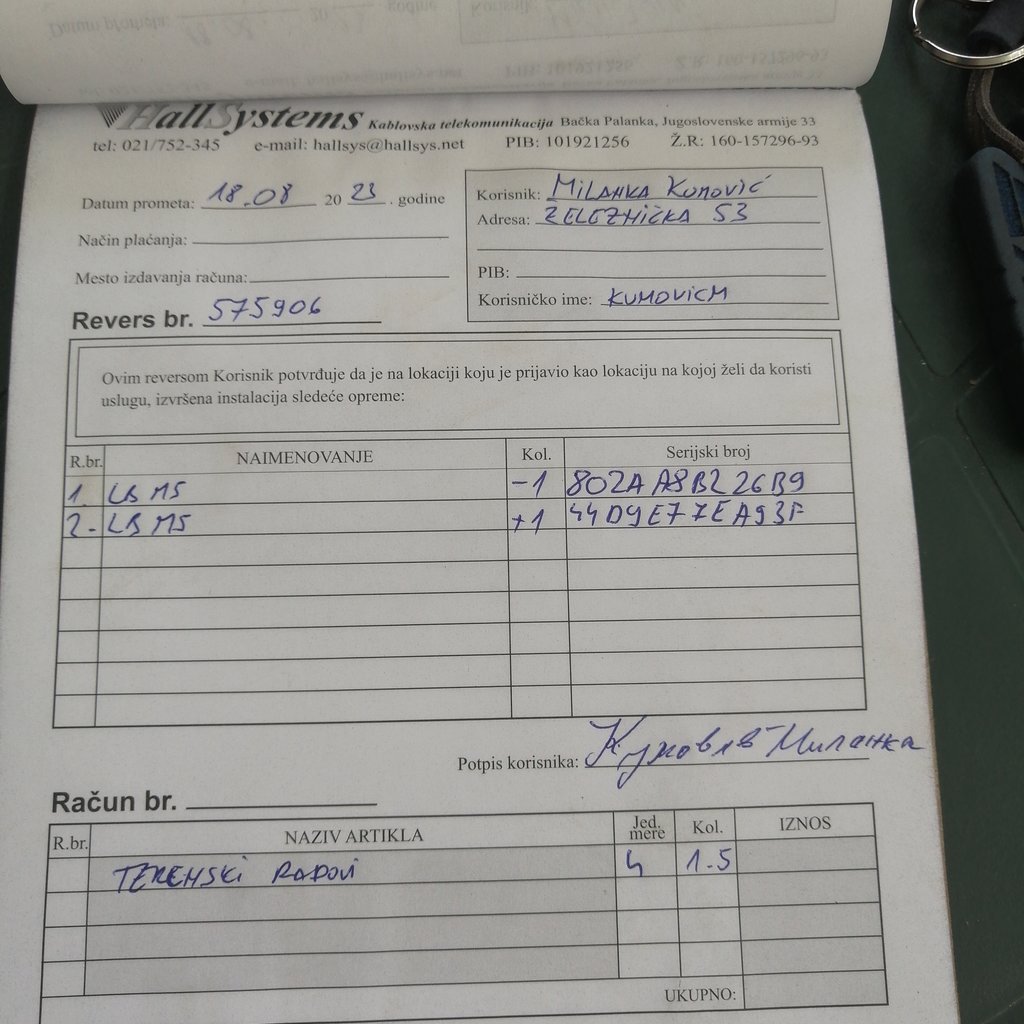 HallSystems Kablovska telekomunikacija Bačka Palanka, Jugoslovenske armije 33
tel: 021/752-345 e-mail: hallsys@hallsys.net PIB: 101921256 Ž.R: 160-157296-93
Datum prometa: 18.08 2023. godine
Način plaćanja:
Mesto izdavanja računa:
Revers br. 575906
Korisnik: MILANKA KUMOVIĆ
Adresa: ŽELEZNIČKA 53
PIB:
Korisničko ime: KUMOVICM
Ovim reversom Korisnik potvrđuje da je na lokaciji koju je prijavio kao lokaciju na kojoj želi da koristi
uslugu, izvršena instalacija sledeće opreme:
R.br. NAIMENOVANJE Kol. Serijski broj
1. LB M5 -1 802AA8B226B9
2. LB M5 +1 44D9E77EA93F
Potpis korisnika: Кумовић Миланка
Račun br.
R.br. NAZIV ARTIKLA Jed. mere Kol. IZNOS
TERENSKI RADOVI h 1.5
UKUPNO: